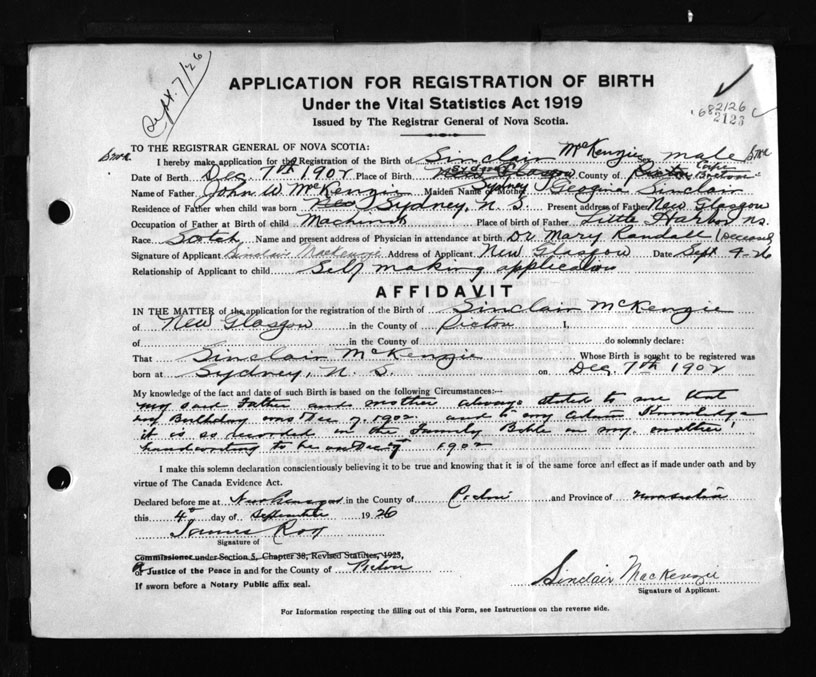 Sept. 7/26
APPLICATION FOR REGISTRATION OF BIRTH
Under the Vital Statistics Act 1919
Issued by The Registrar General of Nova Scotia.
682126
2123
TO THE REGISTRAR GENERAL OF NOVA SCOTIA:
I hereby make application for the Registration of the Birth of Sinclair McKenzie male
Date of Birth Dec 7th 1902 Place of Birth New Glasgow Sydney County of Pictou Cape Breton
Name of Father John W. McKenzie Maiden Name of Mother Georgina Sinclair
Residence of Father when child was born Sydney, N. S. Present address of Father New Glasgow
Occupation of Father at Birth of child Machinist Place of birth of Father Little Harbor N.S.
Race Scotch Name and present address of Physician in attendance at birth Dr Mary Randall (Deceased)
Signature of Applicant Sinclair MacKenzie Address of Applicant New Glasgow Date Sept 4-26
Relationship of Applicant to child Self making application
AFFIDAVIT
IN THE MATTER of the application for the registration of the Birth of Sinclair McKenzie
of New Glasgow in the County of Pictou I,
of in the County of do solemnly declare:
That Sinclair McKenzie Whose Birth is sought to be registered was
born at Sydney, N. S. on Dec. 7th 1902
My knowledge of the fact and date of such Birth is based on the following Circumstances:—
my said Father and mother always stated to me that
my Birthday was Dec 7, 1902 and to my certain Knowledge
it is so recorded in the Family Bible in my mother's
handwriting to be on Dec 7 1902
I make this solemn declaration conscientiously believing it to be true and knowing that it is of the same force and effect as if made under oath and by
virtue of The Canada Evidence Act.
Declared before me at New Glasgow in the County of Pictou and Province of Nova Scotia
this 4th day of September 1926
James Roy
Signature of
Commissioner under Section 5, Chapter 38, Revised Statutes, 1923,
Justice of the Peace in and for the County of Pictou
If sworn before a Notary Public affix seal.
Sinclair MacKenzie
Signature of Applicant.
For Information respecting the filling out of this Form, see Instructions on the reverse side.